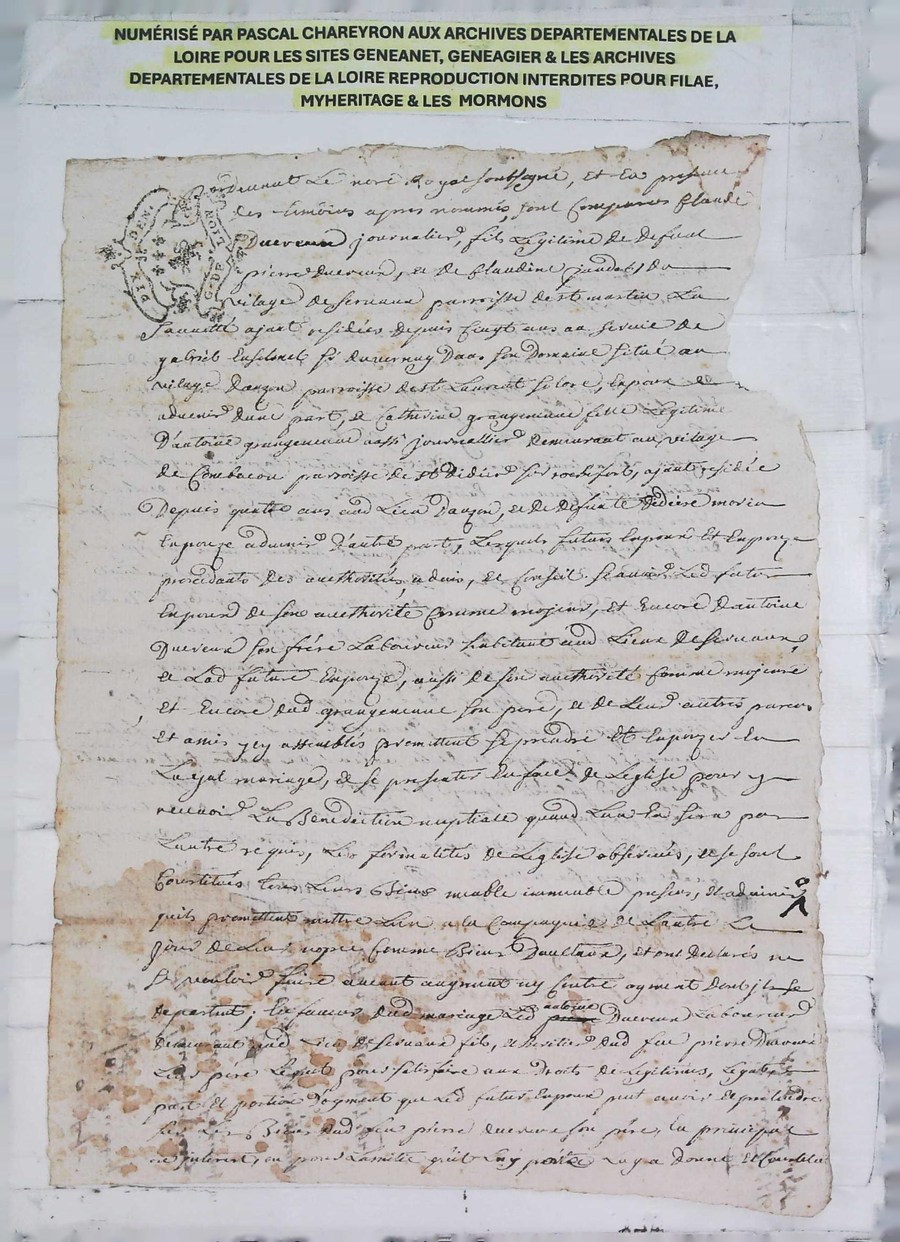 NUMÉRISÉ PAR PASCAL CHAREYRON AUX ARCHIVES DEPARTEMENTALES DE LA
LOIRE POUR LES SITES GENEANET, GENEAGIER & LES ARCHIVES
DEPARTEMENTALES DE LA LOIRE REPRODUCTION INTERDITES POUR FILAE,
MYHERITAGE & LES MORMONS
Le nore Royal soubsigné, et en presence
des témoins apres nommés, sont comparus Claude
Duvreux journalier, fils Legitime de defunt
pierre duvreux, et de Claudine du
vilage de parroisse de st martin La
Sauveté ayant residées depuis vingt ans au service de
gabriel sr duvernay Dans son Domaine situé au
vilage Dauzon parroisse de st Laurent
advenir dune part, et Catherine grangeneuve fille Legitime
D'antoine grangeneuve aussi journallier demeurant au vilage
de Combacou parroisse de st Didier sur rochefort, ayant residée
Depuis quatre ans aud Lieu Dauzon, et de defunte morin
Enpouze advenir D'autre part, Lesquels futurs Enpoux et Enpouze
procédants des authorités, advis, et Conseil sçavoir Led futur
Enpoux de son authorité Comme majeur, et Encore d'antoine
Duvreux son frére Laboureur habitant aud Lieux de
et Lad future Enpouze, aussi de son authorité Comme majeure
Et Encore dud grangeneuve son pere, et de Leurs autres parens
Et amis icy assemblés promettent se prendre et Enpouzer En
Loyal mariage, et se presenter En face de Leglise pour y
recevoir La Bénédiction nuptiale quand Lun En sera par
Lautre requis, Les formalités de Leglise observées, et se sont
Constitués tous Leurs Biens meuble immeuble presens, et advenir
quils promettent mettre Lun a la Compagnie de Lautre Le
jour de Leurs nopces Comme Biens Doultaux, et ont declarés ne
vouloir faire aucun augment ny Contre ogment dont ils se
departent; En faveur dud mariage Led antoine Duvreux Laboureur
demeurant aud Lieu de fils, et heritier dud feu pierre Duvreux
Leur pere Lequel pour satisfaire aux Droits de Legitimes, Legats
part et portion D'ogment que Led futur Enpoux peut avoir Et pretendre
sur Les Biens dud feu pierre duvreux son pere, En principal
ou interest, ou pour Lamitié quil Luy porte Luy a donné et Constitué